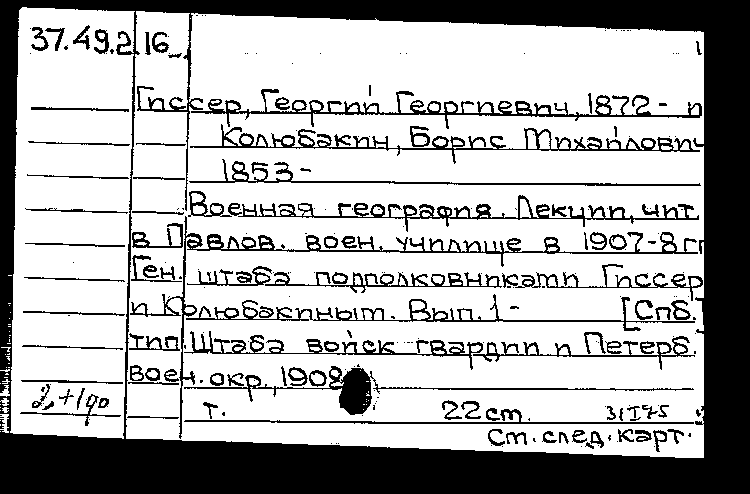 37.49.2.16
1
Гиссер, Георгий Георгиевич, 1872- и
Колюбакин, Борис Михайлович
1853-
Военная география. Лекции, чит.
в Павлов. воен. училище в 1907-8 гг
Ген. штаба подполковниками Гиссер
и Колюбакиным. Вып. 1- [Спб.]
тип. Штаба войск гвардии и Петерб.
воен. окр., 1908
т. 22 см. 31I75
См. след. карт.